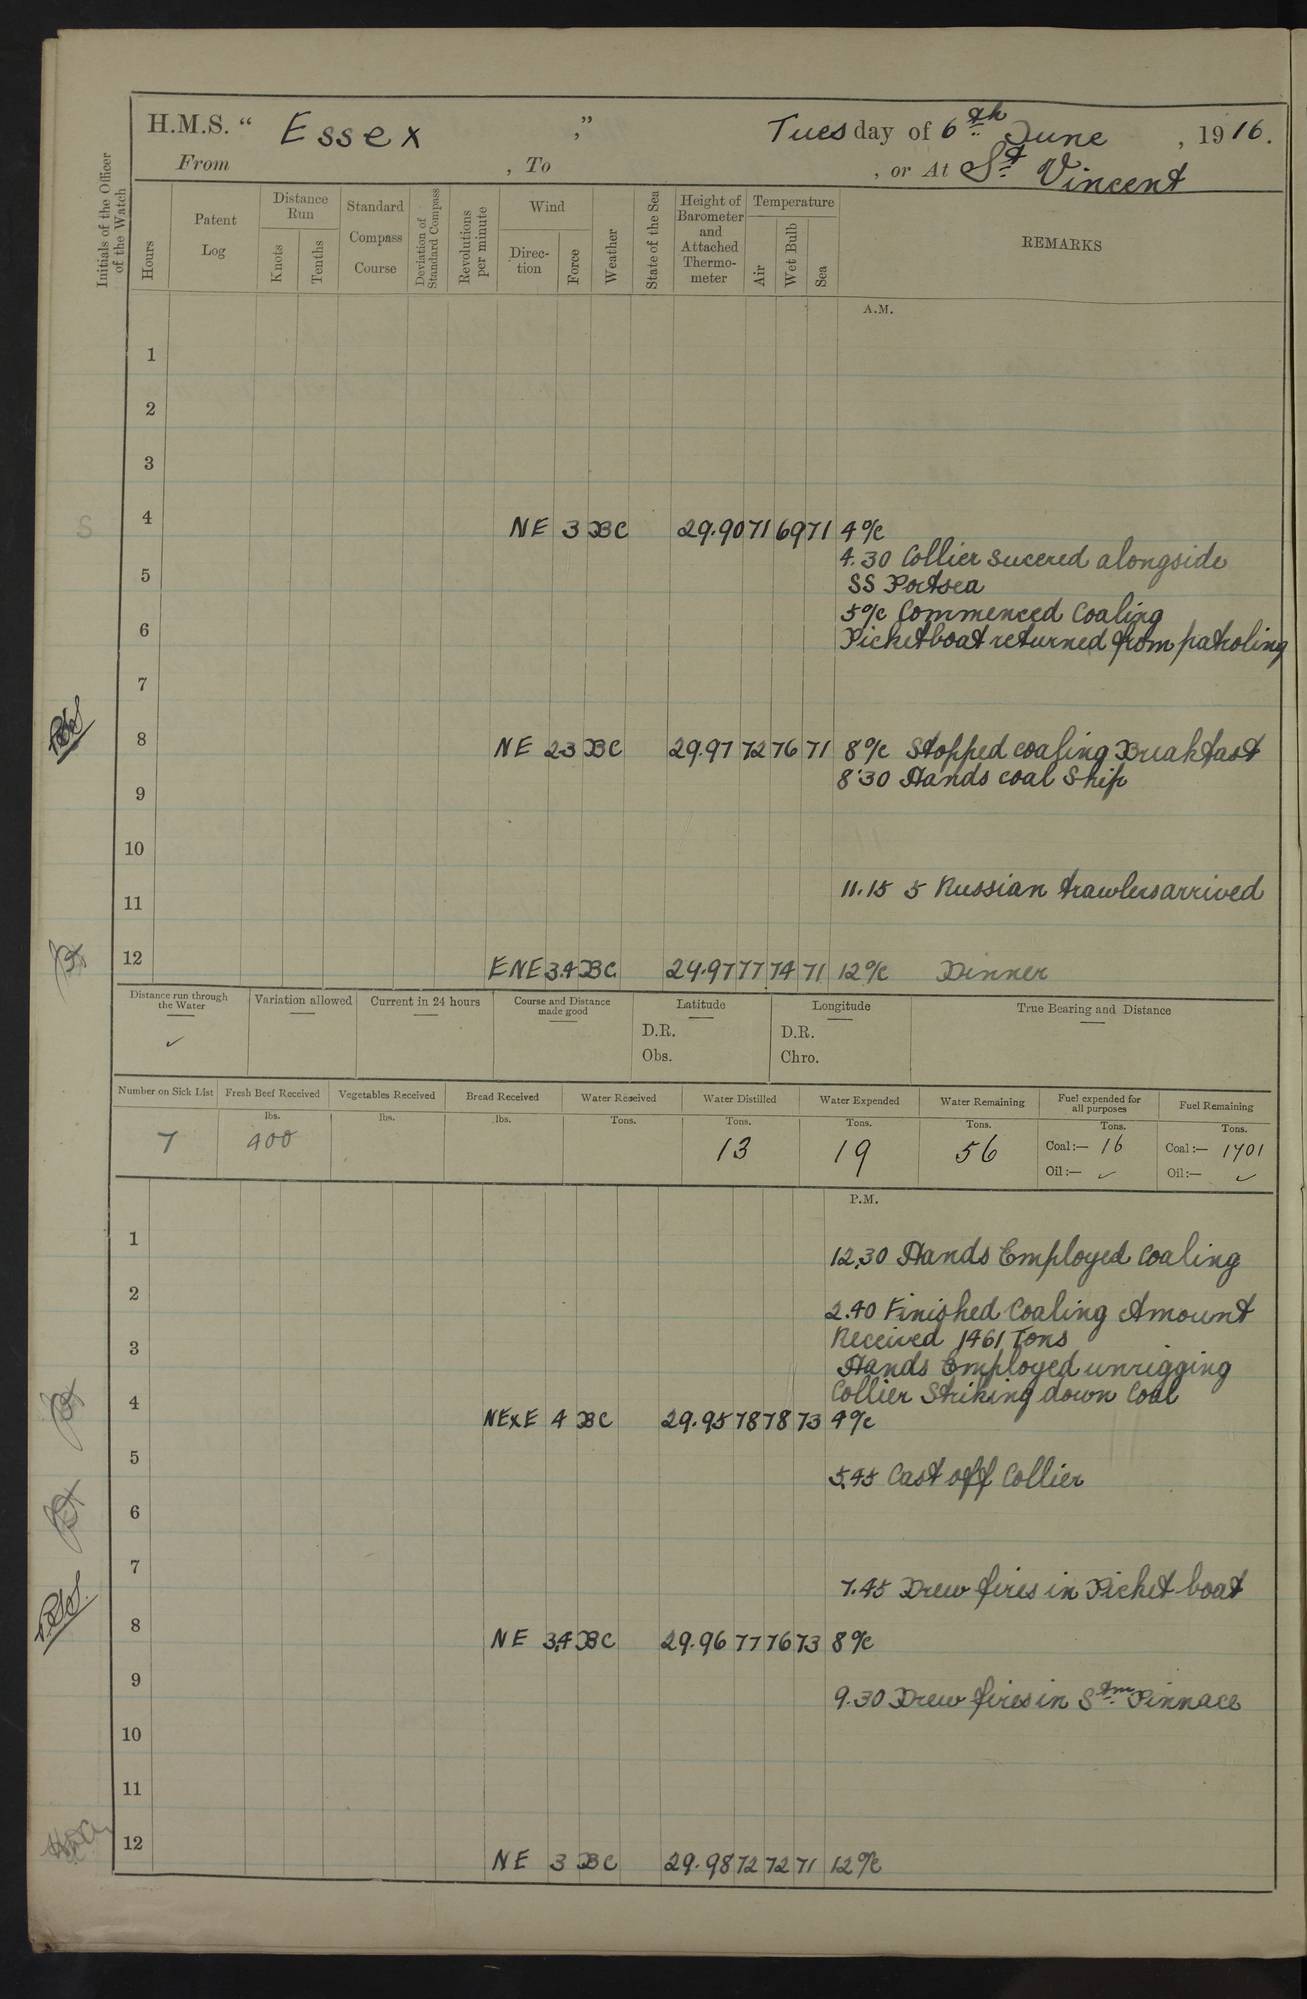 H.M.S. “ Essex ,” Tuesday of 6th June , 1916.
From , To , or At St Vincent
Initials of the Officer of the Watch
Hours
Patent Log
Distance Run
Knots
Tenths
Standard Compass Course
Deviation of Standard Compass
Revolutions per minute
Wind
Direction
Force
Weather
State of the Sea
Height of Barometer and Attached Thermometer
Temperature
Air
Wet Bulb
Sea
REMARKS
A.M.
1
2
3
4 NE 3 BC 29.90 71 69 71 4 o/c
4.30 Collier secured alongside
5 SS Portsea
5 o/c Commenced Coaling
6 Picketboat returned from patroling
7
8 NE 23 BC 29.97 72 76 71 8 o/c Stopped coaling Breakfast
8.30 Hands coal Ship
9
10
11.15 5 Russian trawlers arrived
11
12 ENE 3.4 BC 29.97 77 74 71 12 o/c Dinner
Distance run through the Water
Variation allowed
Current in 24 hours
Course and Distance made good
Latitude
Longitude
True Bearing and Distance
✓
D.R. D.R.
Obs. Chro.
Number on Sick List
Fresh Beef Received
Vegetables Received
Bread Received
Water Received
Water Distilled
Water Expended
Water Remaining
Fuel expended for all purposes
Fuel Remaining
lbs. lbs. lbs. Tons. Tons. Tons. Tons. Tons. Tons.
7 400 13 19 56 Coal:— 16 Coal:— 1701
Oil:— ✓ Oil:— ✓
P.M.
1
12.30 Hands Employed Coaling
2
2.40 Finished Coaling Amount
3 Received 1461 Tons
Hands Employed unrigging
4 Collier Striking down Coal
NExE 4 BC 29.95 78 78 73 4 o/c
5
5.45 Cast off Collier
6
7
7.45 Drew fires in Picket boat
8 NE 3.4 BC 29.96 77 76 73 8 o/c
9
9.30 Drew fires in Stm Pinnace
10
11
12 NE 3 BC 29.98 72 72 71 12 o/c